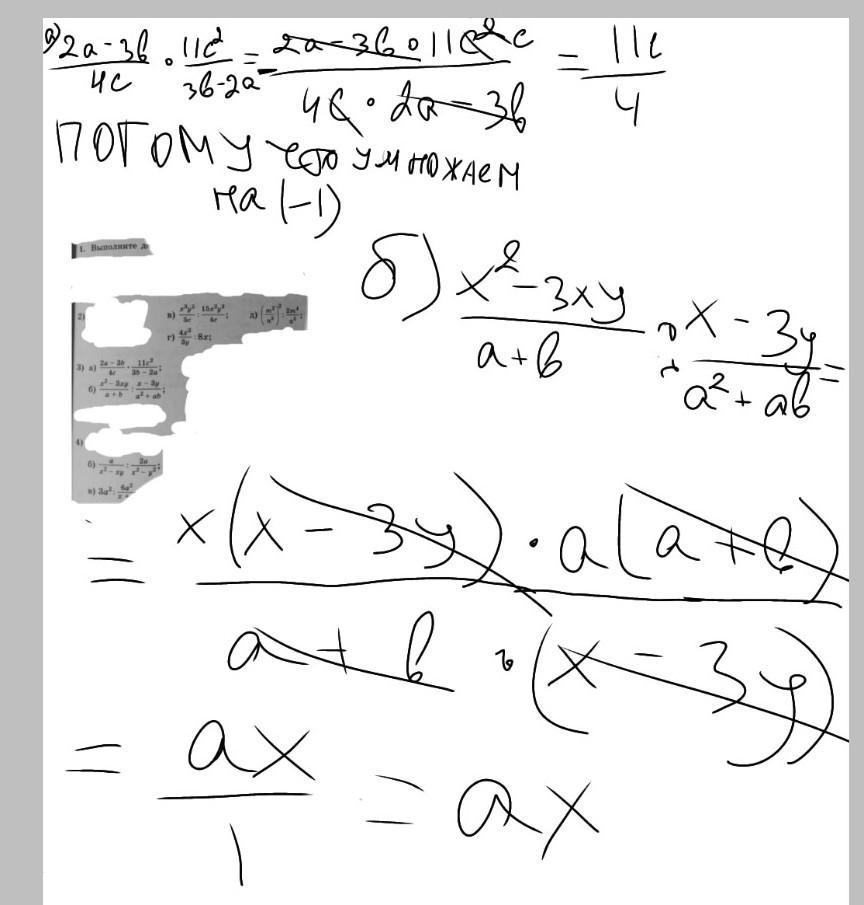 а) 2a-3b/4c · 11c²/3b-2a = - 2a-3b · 11c² c/4c · 2a-3b = 11c/4
ПОТОМУ что умножаем
на (-1)
1. Выполните д
2)
в) x³y²/5c : 15x²y²/4c;
д)
г) 4x²/3y : 8x;
3) а) 2a - 3b/4c · 11c²/3b - 2a;
б) x² - 3xy/a + b : x - 3y/a² + ab;
4)
б) a/x² - xy : 2a/x² - y²;
в) 3a² : 6a²/x +
б) x²-3xy/a+b : x-3y/a²+ab =
= x(x-3y) · a(a+b)/a+b · (x-3y)
= ax/1 = ax